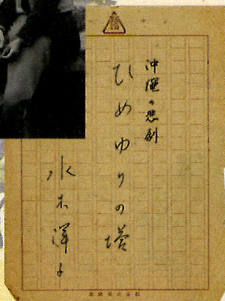 沖縄の悲劇
ひめゆりの塔
水木洋子